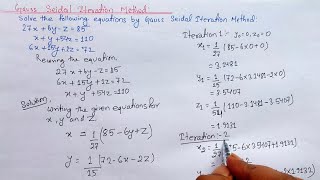 Gauss Seidal Iteration Method:
Solve the following equations by Gauss Seidal Iteration Method:
27x + 6y - z = 85
x + y + 54z = 110
6x + 15y + 2z = 72
Reusing the equation
27x + 6y - z = 85
6x + 15y + 2z = 72
x + y + 54z = 110
Solution:
Writing the given equations for
x, y and z
x = 1/27 (85 - 6y + z)
y = 1/15 (72 - 6x - 2z)
Iteration 1: y₀ = 0, z₀ = 0
x₁ = 1/27 (85 - 6×0 + 0)
= 3.1481
y₁ = 1/15 (72 - 6×3.1481 - 2×0)
= 3.5407
z₁ = 1/54 (110 - 3.1481 - 3.5407)
= 1.9131
Iteration:-2
x₂ = 1/27 (85 - 6×3.5407 + 1.9131)